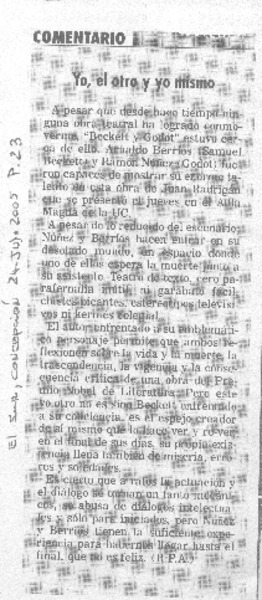 COMENTARIO
Yo, el otro y yo mismo
A pesar que desde hace tiempo nin-
guna obra teatral ha logrado conmo-
vernos, "Beckett y Godot" estuvo cer-
ca de ello. Arnaldo Berríos (Samuel
Beckett) y Ramón Núñez (Godot) fue-
ron capaces de mostrar su enorme ta-
lento en esta obra de Juan Radrigán
que se presentó el jueves en el Aula
Magna de la UC.
A pesar de lo reducido del escenario,
Núñez y Berríos hacen entrar en su
desolado mundo, un espacio donde
uno de ellos espera la muerte junto a
su asistente. Teatro de texto, cero pa-
rafernalia inútil, ni garabato fácil,
chistes picantes, estereotipos televisi-
vos ni kermés colegial.
El autor enfrentado a su emblemáti-
co personaje permite que ambos re-
flexionen sobre la vida y la muerte, la
trascendencia, la vigencia y la conse-
cuencia crítica de una obra del Pre-
mio Nobel de Literatura. Pero este
yo otro no es sino Beckett enfrentado
a su conciencia, es el espejo creador
de sí mismo que lo hace ver y re-ver
en el final de sus días, su propia exis-
tencia llena también de miseria, erro-
res y soledades.
Es cierto que a ratos la actuación y
el diálogo se toman un tanto mecáni-
cos, se abusa de diálogos intelectua-
les y sólo para iniciados, pero Núñez
y Berríos tienen la suficiente expe-
riencia para habernos llegar hasta el
final, que no es feliz. (R.P.A.)
El Sur, Concepción 24-Jul-2005 P. 23